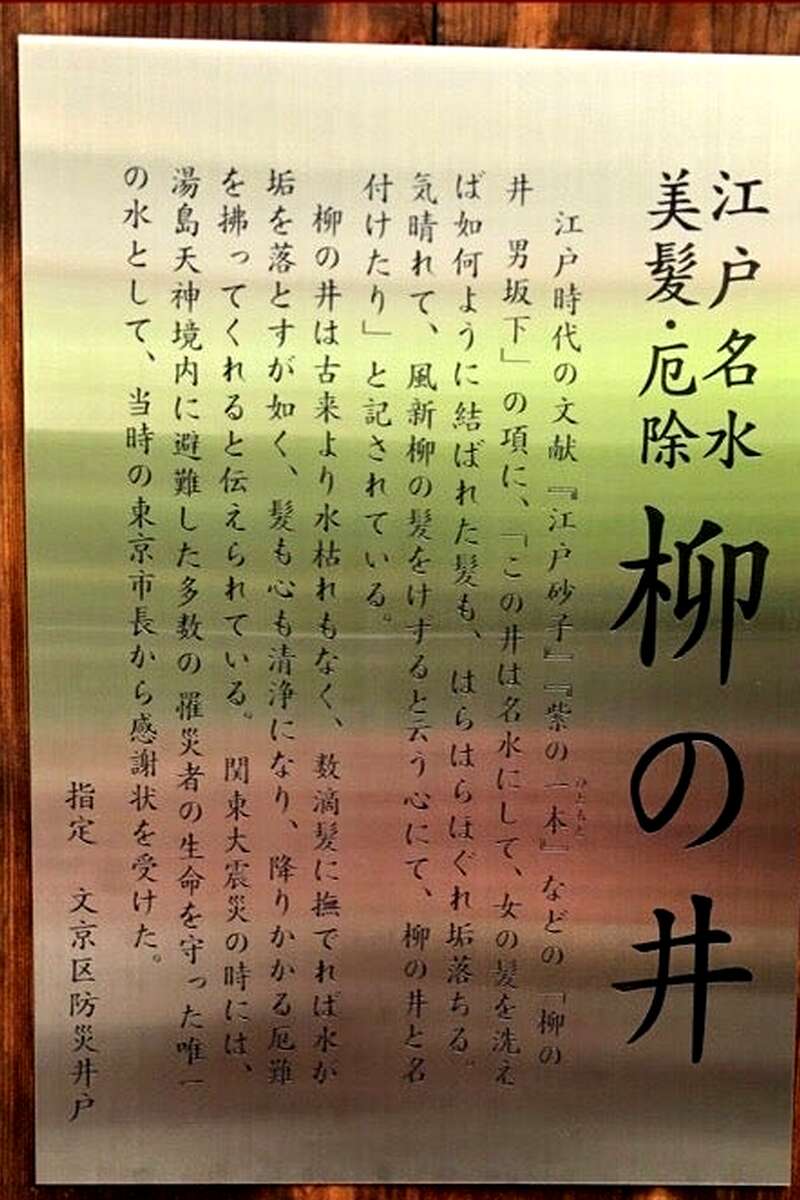 江戸名水
美髪・厄除
柳の井
江戸時代の文献『江戸砂子』『紫の一本』などの「柳の
ひともと
井 男坂下」の項に、「この井は名水にして、女の髪を洗え
ば如何ように結ばれた髪も、はらはらほぐれ垢落ちる。
気晴れて、風新柳の髪をけずると云う心にて、柳の井と名
付けたり」と記されている。
柳の井は古来より水枯れもなく、数滴髪に撫でれば水が
垢を落とすが如く、髪も心も清浄になり、降りかかる厄難
を拂ってくれると伝えられている。関東大震災の時には、
湯島天神境内に避難した多数の罹災者の生命を守った唯一
の水として、当時の東京市長から感謝状を受けた。
指定 文京区防災井戸